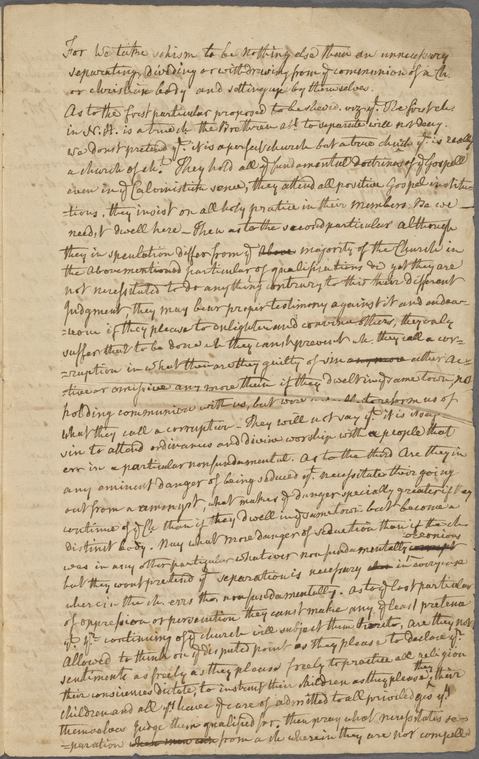 For we take schism to be nothing else than an unnecessary
separating, dividing or withdrawing from ye communion of a Ch
or christian body and setting up by themselves.
As to the first particular proposed to be shewd. viz. yt. The first ch.
in N. H. is a true ch. the Brethren abt. to separate will not deny.
We dont pretend yt. it is a perfect church but a true church yt. is really
a church of ch.t They hold all ye fundamental doctrines of ye Gospell
even in ye Calvinistick sence, they attend all positive Gospel institu-
-tions. they insist on all holy pratice in their members. &c we
need, t dwell here - Then as to the second particular although
they in speculation differ from ye above majority of the Church in
the abovementioned particular of qualifications &c yet they are
not necessitated to do any thing contrary to this their different
Judgment they may bear proper testimony against it and endeav-
-our if they please to enlighten and convince others, they only
suffer that to be done wh they cansh prevent wh. they call a cor-
=ruption in what then are they guilty of sin any more either Ac-
-tive or omissive any more than if they dwelt in ye same town, not
holding communion with us, but were to reform us of
what they call a corruption. They will not say yt. it is
sin to attend ordinances and divine worship with a people that
err in a particular nonfundamental. As to the third Are they in
any eminent danger of being seduced yt. necessitate their going
out from amongst, what makes ye danger specially greater if they
continue of ye ch than if they dwell in ye same town but become a
distinct body. Nay what more danger of seduction than if the ch
was in any other particular whatever nonfundamentally erronious corrupt
but they wont pretend yt separation is necessary when in every case
wherein the ch. errs tho. nonfundamentally. As to ye last particular
of oppression or persecution they canst make any ye least pretence
yt. yr. continuing of ye church will subject them, are they not
Allowed to think on ye disputed point as they please to declare yr.
sentiments as freely as they please freely to practice all religion
their consciences dictate, to instruct their children as they please, they their
children and all yt. leave ye care of admitted to all priviledges yt
themselves judge them qualified for, then pray what necessitates se-
=paration from a ch wherein they are not compelled